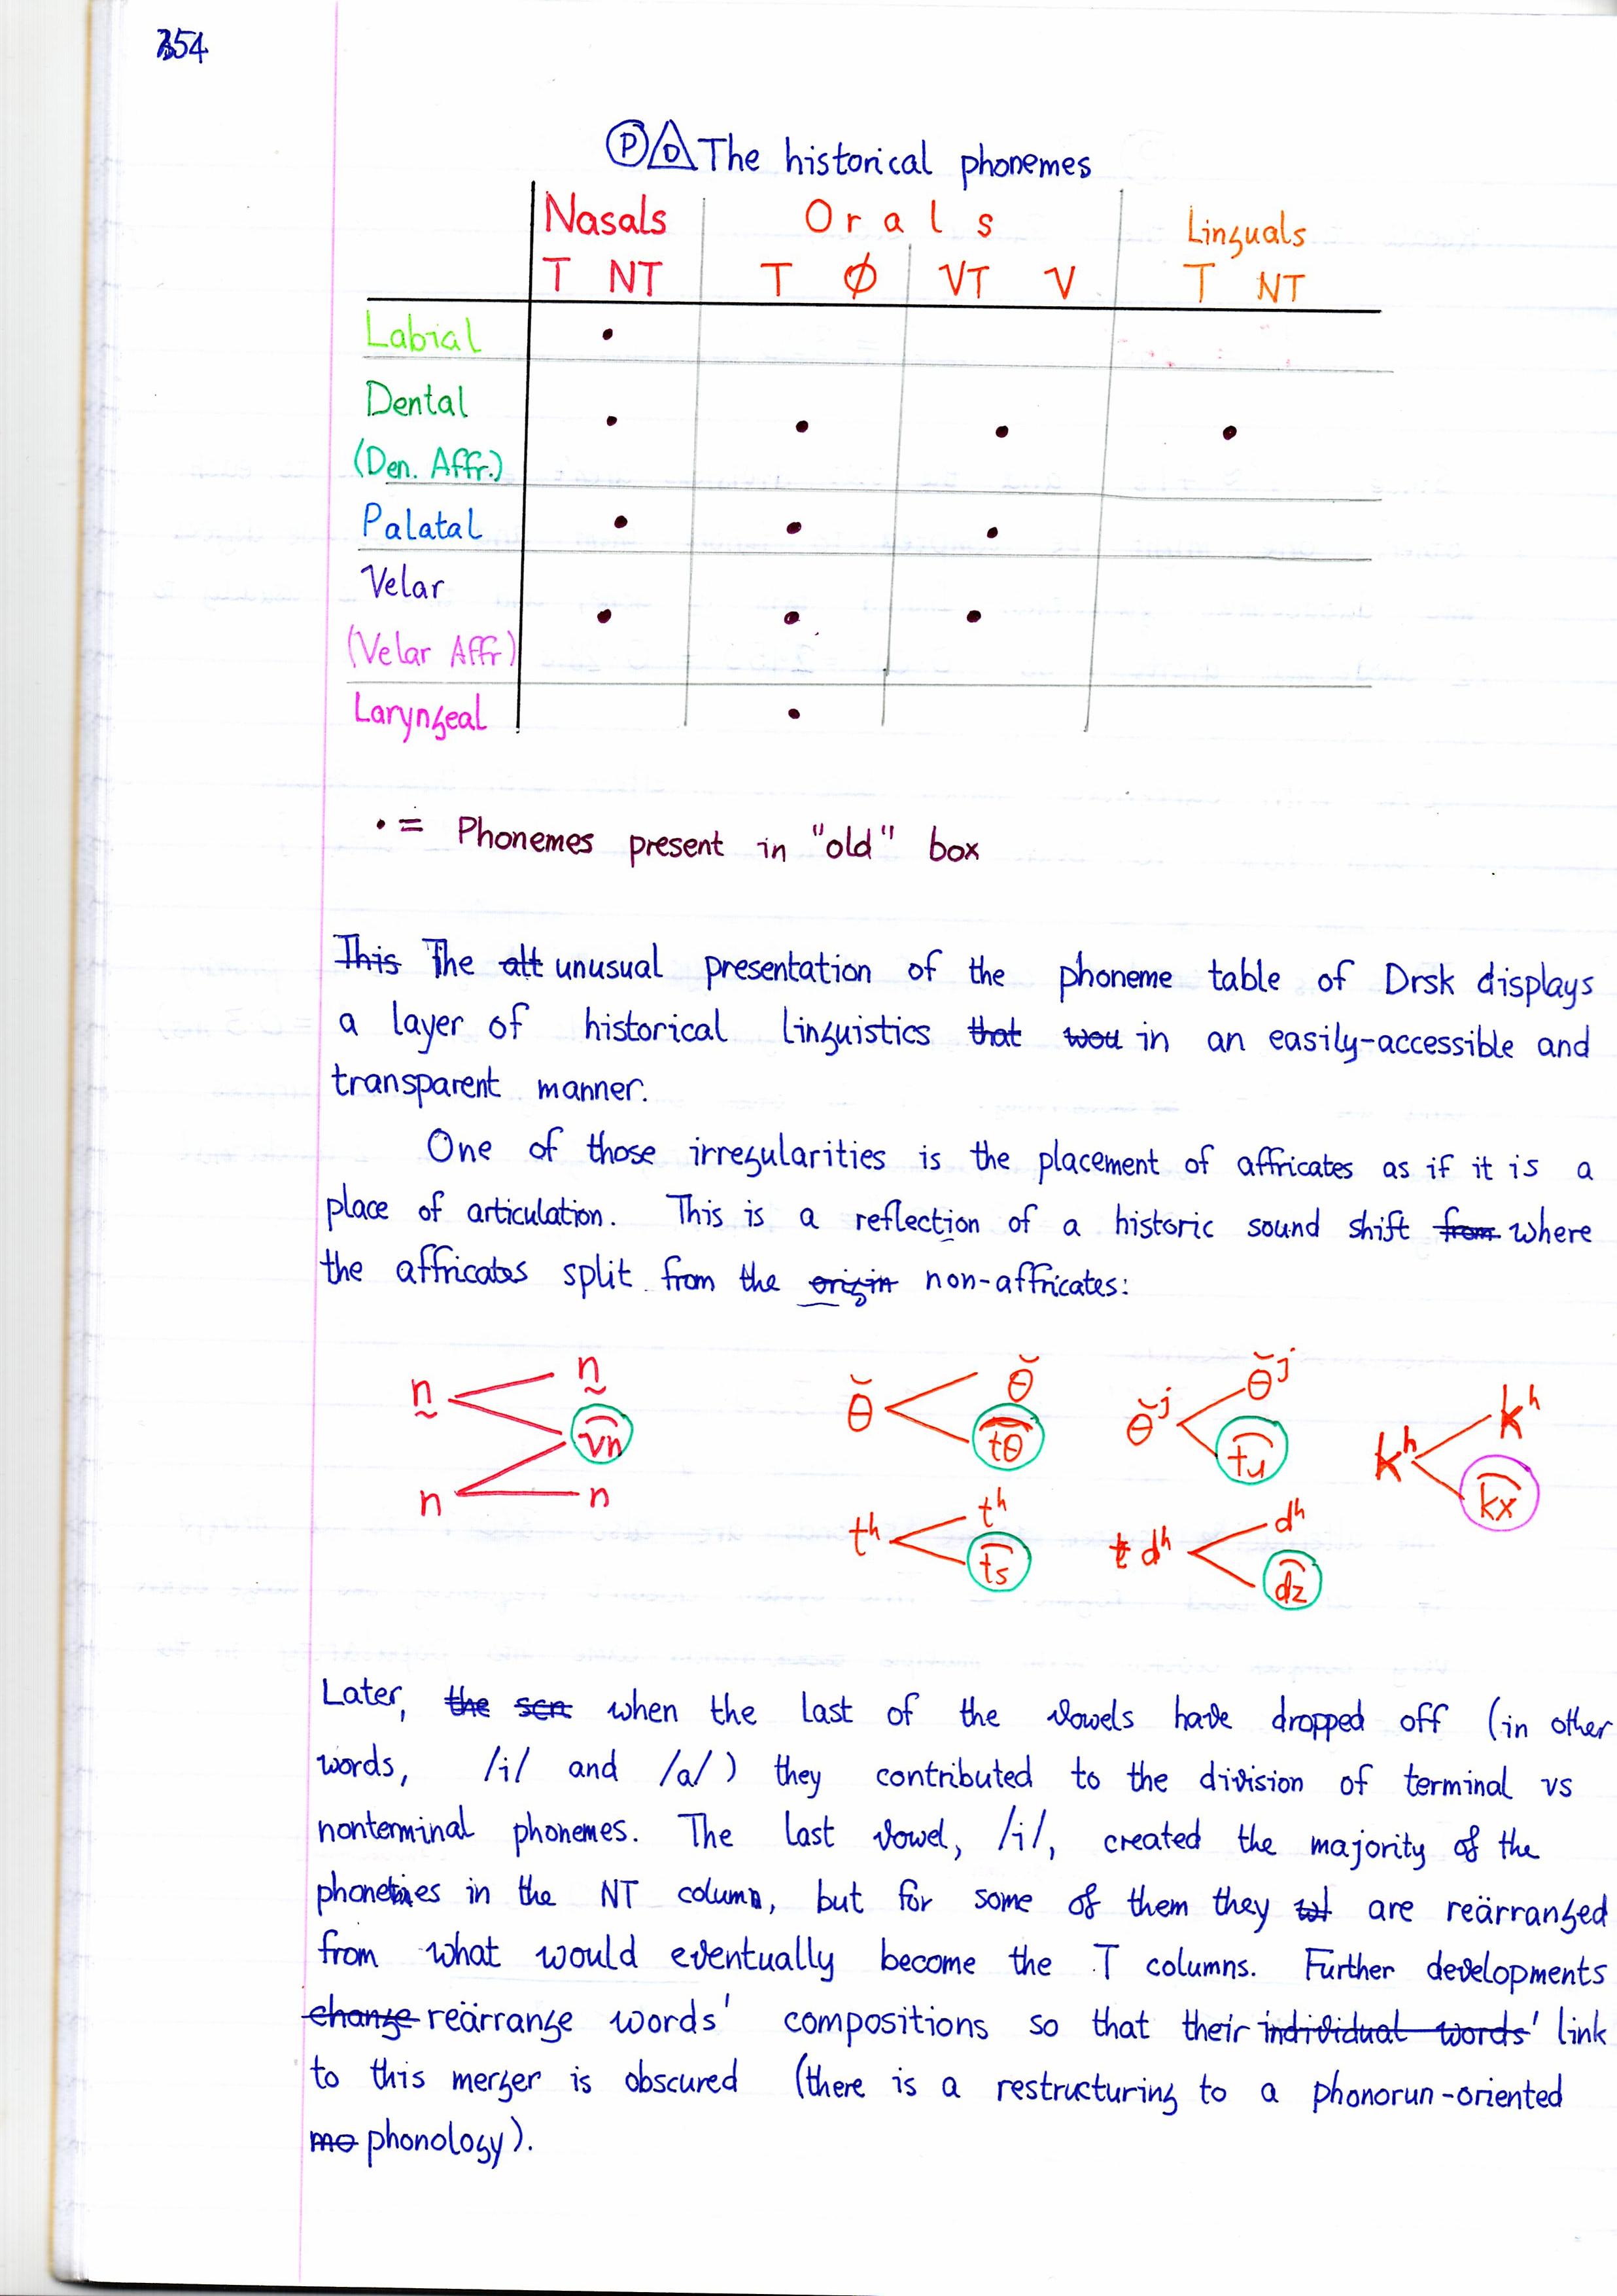 354
Ⓟ D The historical phonemes
Nasals Orals Linguals
T NT T Ø VT V T NT
Labial •
Dental • • • •
(Den. Affr.)
Palatal • • •
Velar • • •
(Velar Affr)
Laryngeal •
• = Phonemes present in "old" box
This The alt unusual presentation of the phoneme table of Drsk displays
a layer of historical linguistics that wou in an easily-accessible and
transparent manner.
One of those irregularities is the placement of affricates as if it is a
place of articulation. This is a reflection of a historic sound shift from where
the affricates split from the origin non-affricates:
n̰ n̰ v͡n n n
θ̆ θ̆ t͡θ θ̆ʲ θ̆ʲ kʰ kʰ k͡x
tʰ tʰ t͡s t dʰ dʰ d͡z
Later, the scn when the last of the vowels have dropped off (in other
words, /i/ and /a/) they contributed to the division of terminal vs
nonterminal phonemes. The last vowel, /i/, created the majority of the
phonemes in the NT column, but for some of them they are reärranged
from what would eventually become the T columns. Further developments
change reärrange words' compositions so that their individual words' link
to this merger is obscured (there is a restructuring to a phonorun-oriented
mo phonology).